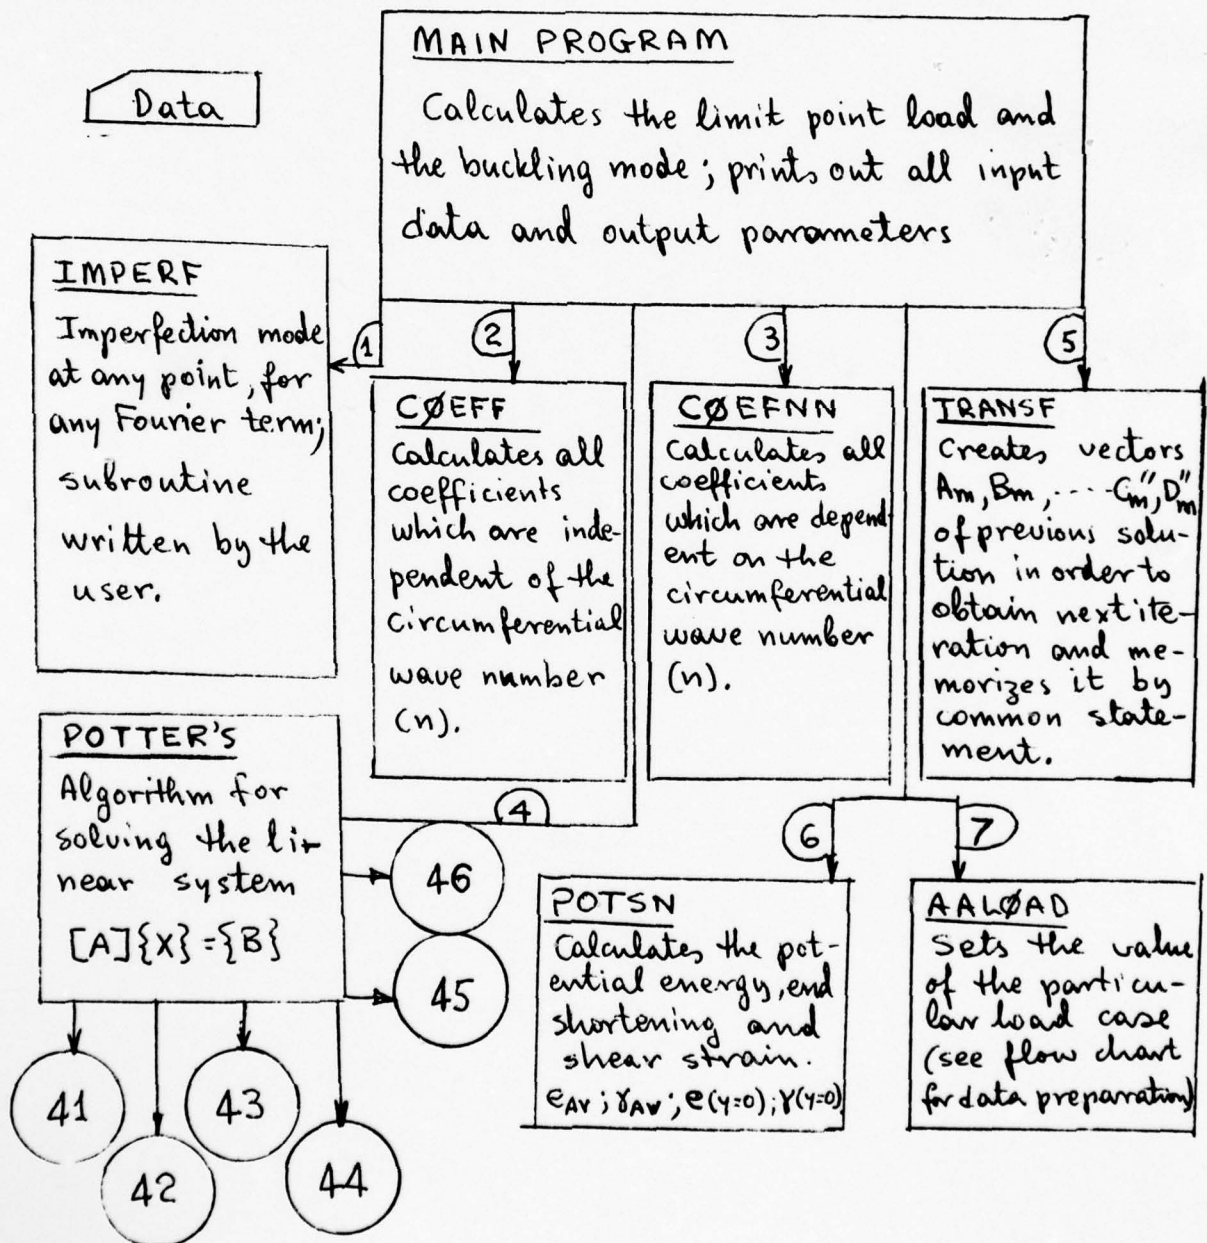 MAIN PROGRAM
Calculates the limit point load and
the buckling mode; prints out all input
data and output parameters
Data
IMPERF
Imperfection mode
at any point, for
any Fourier term;
subroutine
written by the
user.
1
2
3
5
CØEFF
Calculates all
coefficients
which are inde-
pendent of the
circumferential
wave number
(n).
CØEFNN
Calculates all
coefficients
which are depend
ent on the
circumferential
wave number
(n).
TRANSF
Creates vectors
Am, Bm, ····· C"m, D"m
of previous solu-
tion in order to
obtain next ite-
ration and me-
morizes it by
common state-
ment.
POTTER'S
Algorithm for
solving the li-
near system
[A]{X}={B}
4
46
45
41
42
43
44
6
7
POTSN
Calculates the pot-
ential energy, end
shortening and
shear strain.
eAV; γAV; e(y=0); γ(y=0)
AALØAD
Sets the value
of the particu-
lar load case
(see flow chart
for data preparation)